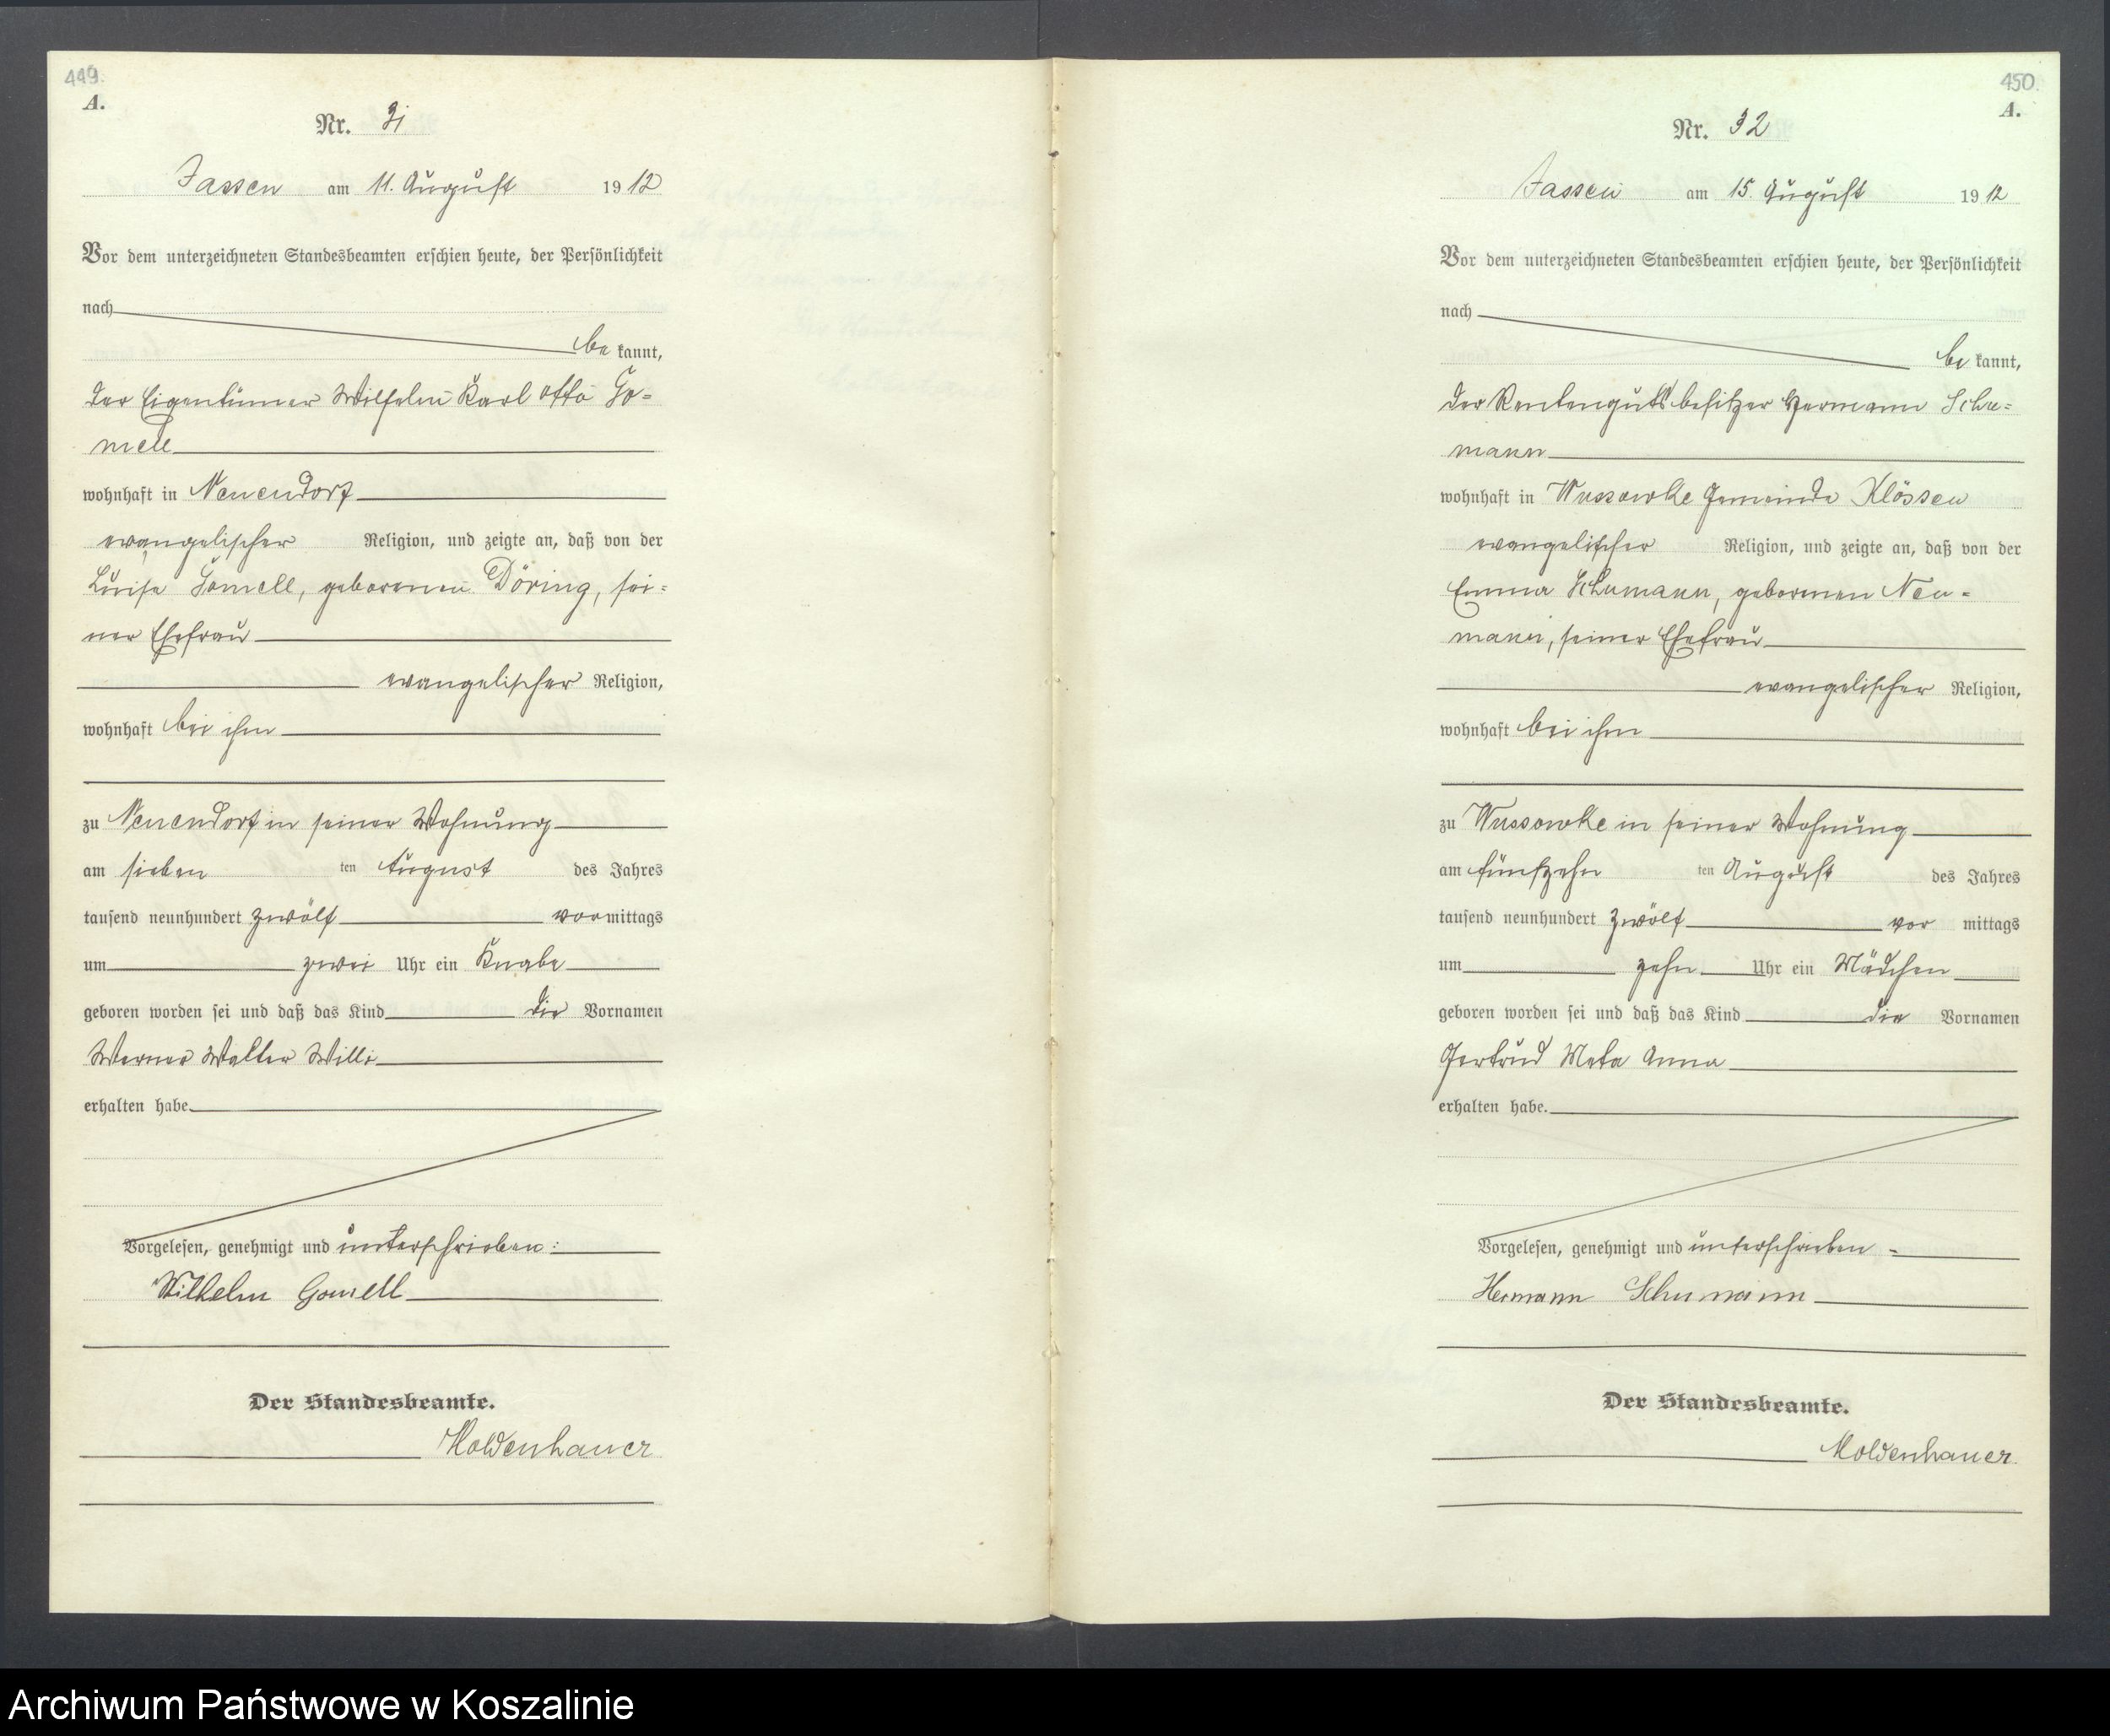 449.
A.
Nr. 31
Jassen am 11. August 1912
Vor dem unterzeichneten Standesbeamten erschien heute, der Persönlichkeit
nach
be kannt,
der Eigentümer Wilhelm Karl Otto Go=
mell
wohnhaft in Neuendorf
evangelischer Religion, und zeigte an, daß von der
Luise Gomell, geborenen Döring, sei=
ner Ehefrau
evangelischer Religion,
wohnhaft bei ihm
zu Neuendorf in seiner Wohnung
am sieben ten August des Jahres
tausend neunhundert zwölf vormittags
um zwei Uhr ein Knabe
geboren worden sei und daß das Kind die Vornamen
Werner Walter Willi
erhalten habe.
Vorgelesen, genehmigt und unterschrieben:
Wilhelm Gomell
Der Standesbeamte.
Moldenhauer
450.
A.
Nr. 32
Jassen am 15. August 1912
Vor dem unterzeichneten Standesbeamten erschien heute, der Persönlichkeit
nach
be kannt,
der Rentengutsbesitzer Hermann Schu=
mann
wohnhaft in Wussowke Gemeinde Klössen
evangelischer Religion, und zeigte an, daß von der
Emma Schumann, geborenen Neu=
mann, seiner Ehefrau
evangelischer Religion,
wohnhaft bei ihm
zu Wussowke in seiner Wohnung
am fünfzehn ten August des Jahres
tausend neunhundert zwölf vor mittags
um zehn Uhr ein Mädchen
geboren worden sei und daß das Kind die Vornamen
Gertrud Meta Anna
erhalten habe.
Vorgelesen, genehmigt und unterschrieben -
Hermann Schumann
Der Standesbeamte.
Moldenhauer.
Archiwum Państwowe w Koszalinie